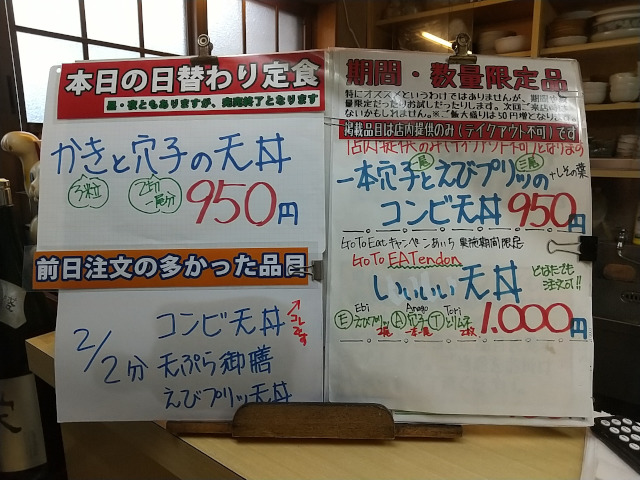 本日の日替わり定食
昼・夜ともありますが、売切終了となります
かきと穴子の天丼
3粒
2切
一尾分
950円
前日注文の多かった品目
2/2分
コンビ天丼
コレです
天ぷら御膳
えびプリッ天丼
期間・数量限定品
特にオススメというわけではありませんが、期間や数
量限定だったりお試しだったりします。次回ご来店時
ないかもしれません。※ご飯大盛りは50円増となります
掲載品目は店内提供のみ(テイクアウト不可)です
店内提供のみ(テイクアウト不可)となります
一尾
三尾
一本穴子とえびプリッの
+しその葉
コンビ天丼 950円
GoToEatキャンペーンあいち 実施期間限定
GoTo EATendon
いいいい天丼
どなたでも
注文可!!
Ebi
Anago
Tori
E えびプリッ A 穴子 T とりムネ
2尾 一本・尾 2枚
1.000円